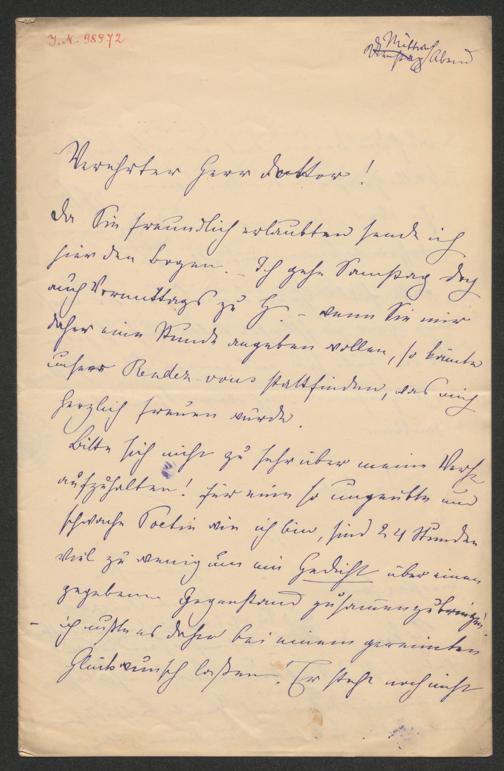 J. N. 98972
Mittwoch
Dienstag Abend
Verehrter Herr Doktor!
Da Sie freundlich erlaubten sende ich
hier den Bogen. – Ich gehe Samstag doch
auch Vormittags zu H. – wenn Sie mir
daher eine Stunde angeben wollen, so könnte
unser Rendez-vous stattfinden, was mich
herzlich freuen würde.
Bitte sich nicht zu sehr über meine Verse
aufzuhalten! für eine so ungeübte und
schwache Poetin wie ich bin, sind 24 Stunden
viel zu wenig um ein Gedicht über einen
gegebenen Gegenstand zusammenzubringen
ich mußte es daher bei einem gereimten
Glückwunsch lassen. Er steht noch nicht